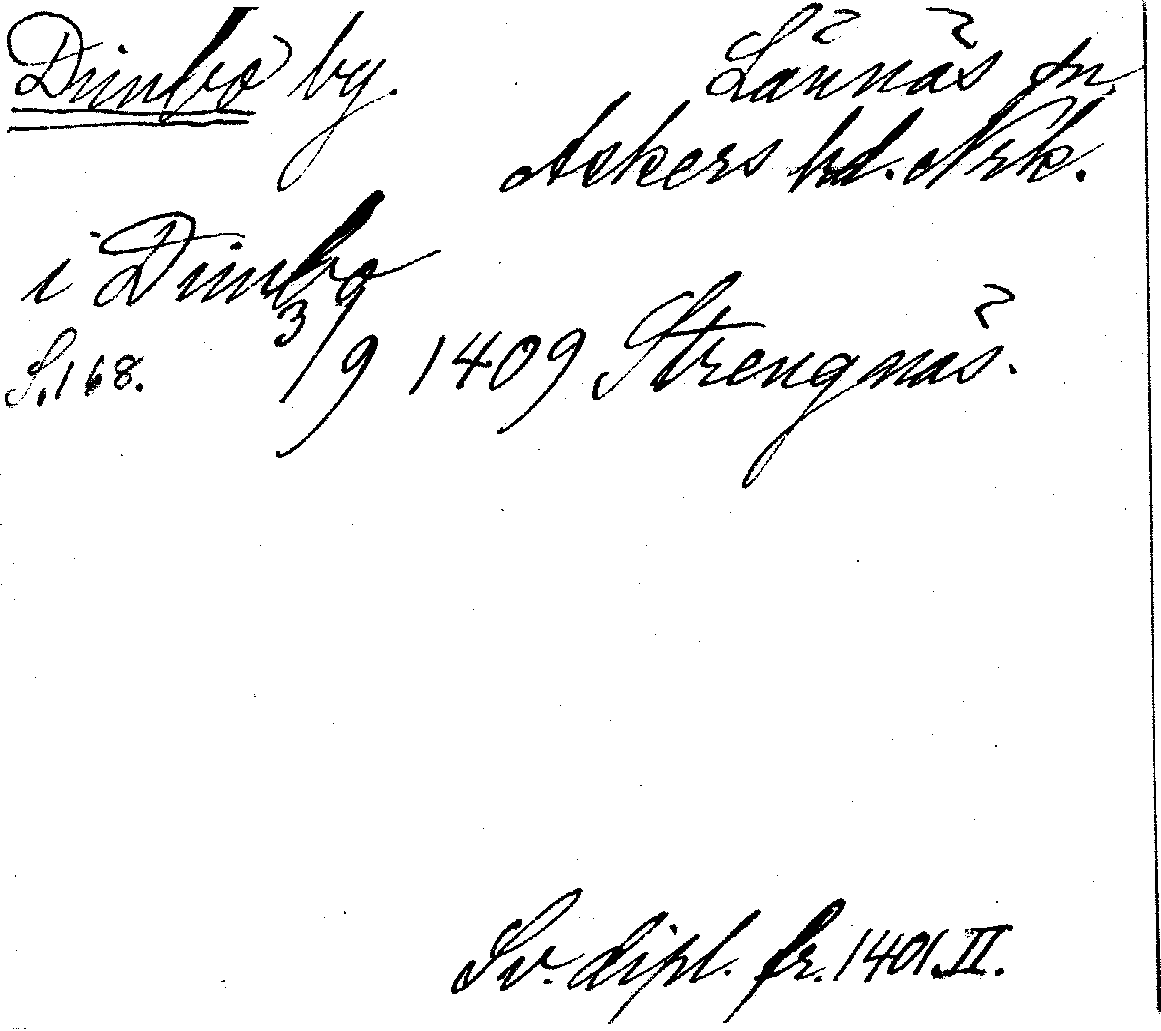 Dimbo by. Lännäs sn
Askers hd. Nrk.
i Dimbo
S. 168. 3/9 1409 Strengnäs.
Sv. dipl. fr. 1401. II.